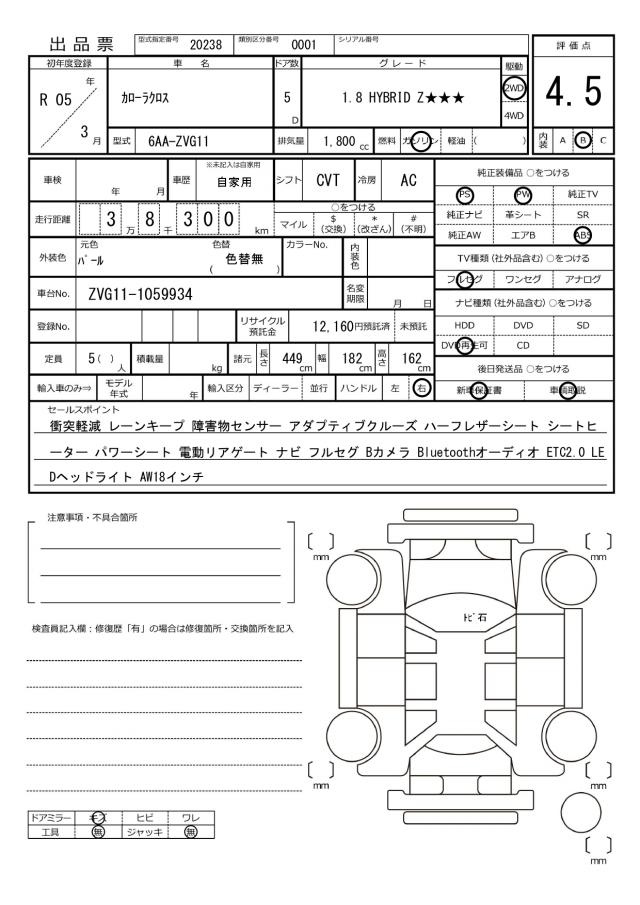 出品票 型式指定番号 20238 類別区分番号 0001 シリアル番号
評価点
4.5
内装 A B C
初年度登録 車名 ドア数 グレード 駆動
R 05 年 3 月
カローラクロス 5 D 1.8 HYBRID Z★★★ 2WD
4WD
型式 6AA-ZVG11 排気量 1,800 cc 燃料 ガソリン 軽油 ( )
車検 年 月 車歴 ※未記入は自家用 自家用 シフト CVT 冷房 AC
走行距離 3 万 8 千 300 km
○をつける
マイル $(交換) *(改ざん) #(不明)
外装色 元色 パール 色替 ( 色替無 ) カラーNo. 内装色
車台No. ZVG11-1059934 名変期限 月 日
登録No. リサイクル預託金 12,160円預託済 未預託
定員 5( )人 積載量 kg 諸元 長さ 449cm 幅 182cm 高さ 162cm
輸入車のみ⇒ モデル年式 年 輸入区分 ディーラー 並行 ハンドル 左 右
純正装備品 ○をつける
PS PW 純正TV
純正ナビ 革シート SR
純正AW エアB ABS
TV種類(社外品含む) ○をつける
フルセグ ワンセグ アナログ
ナビ種類(社外品含む) ○をつける
HDD DVD SD
DVD再生可 CD
後日発送品 ○をつける
新車保証書 車輌取説
セールスポイント
衝突軽減 レーンキープ 障害物センサー アダプティブクルーズ ハーフレザーシート シートヒ
ーター パワーシート 電動リアゲート ナビ フルセグ Bカメラ Bluetoothオーディオ ETC2.0 LE
Dヘッドライト AW18インチ
注意事項・不具合箇所
検査員記入欄:修復歴「有」の場合は修復箇所・交換箇所を記入
ドアミラー キズ ヒビ ワレ
工具 無 ジャッキ 無
[ ] mm
[ ] mm
トビ石
[ ] mm
[ ] mm
[ ] mm